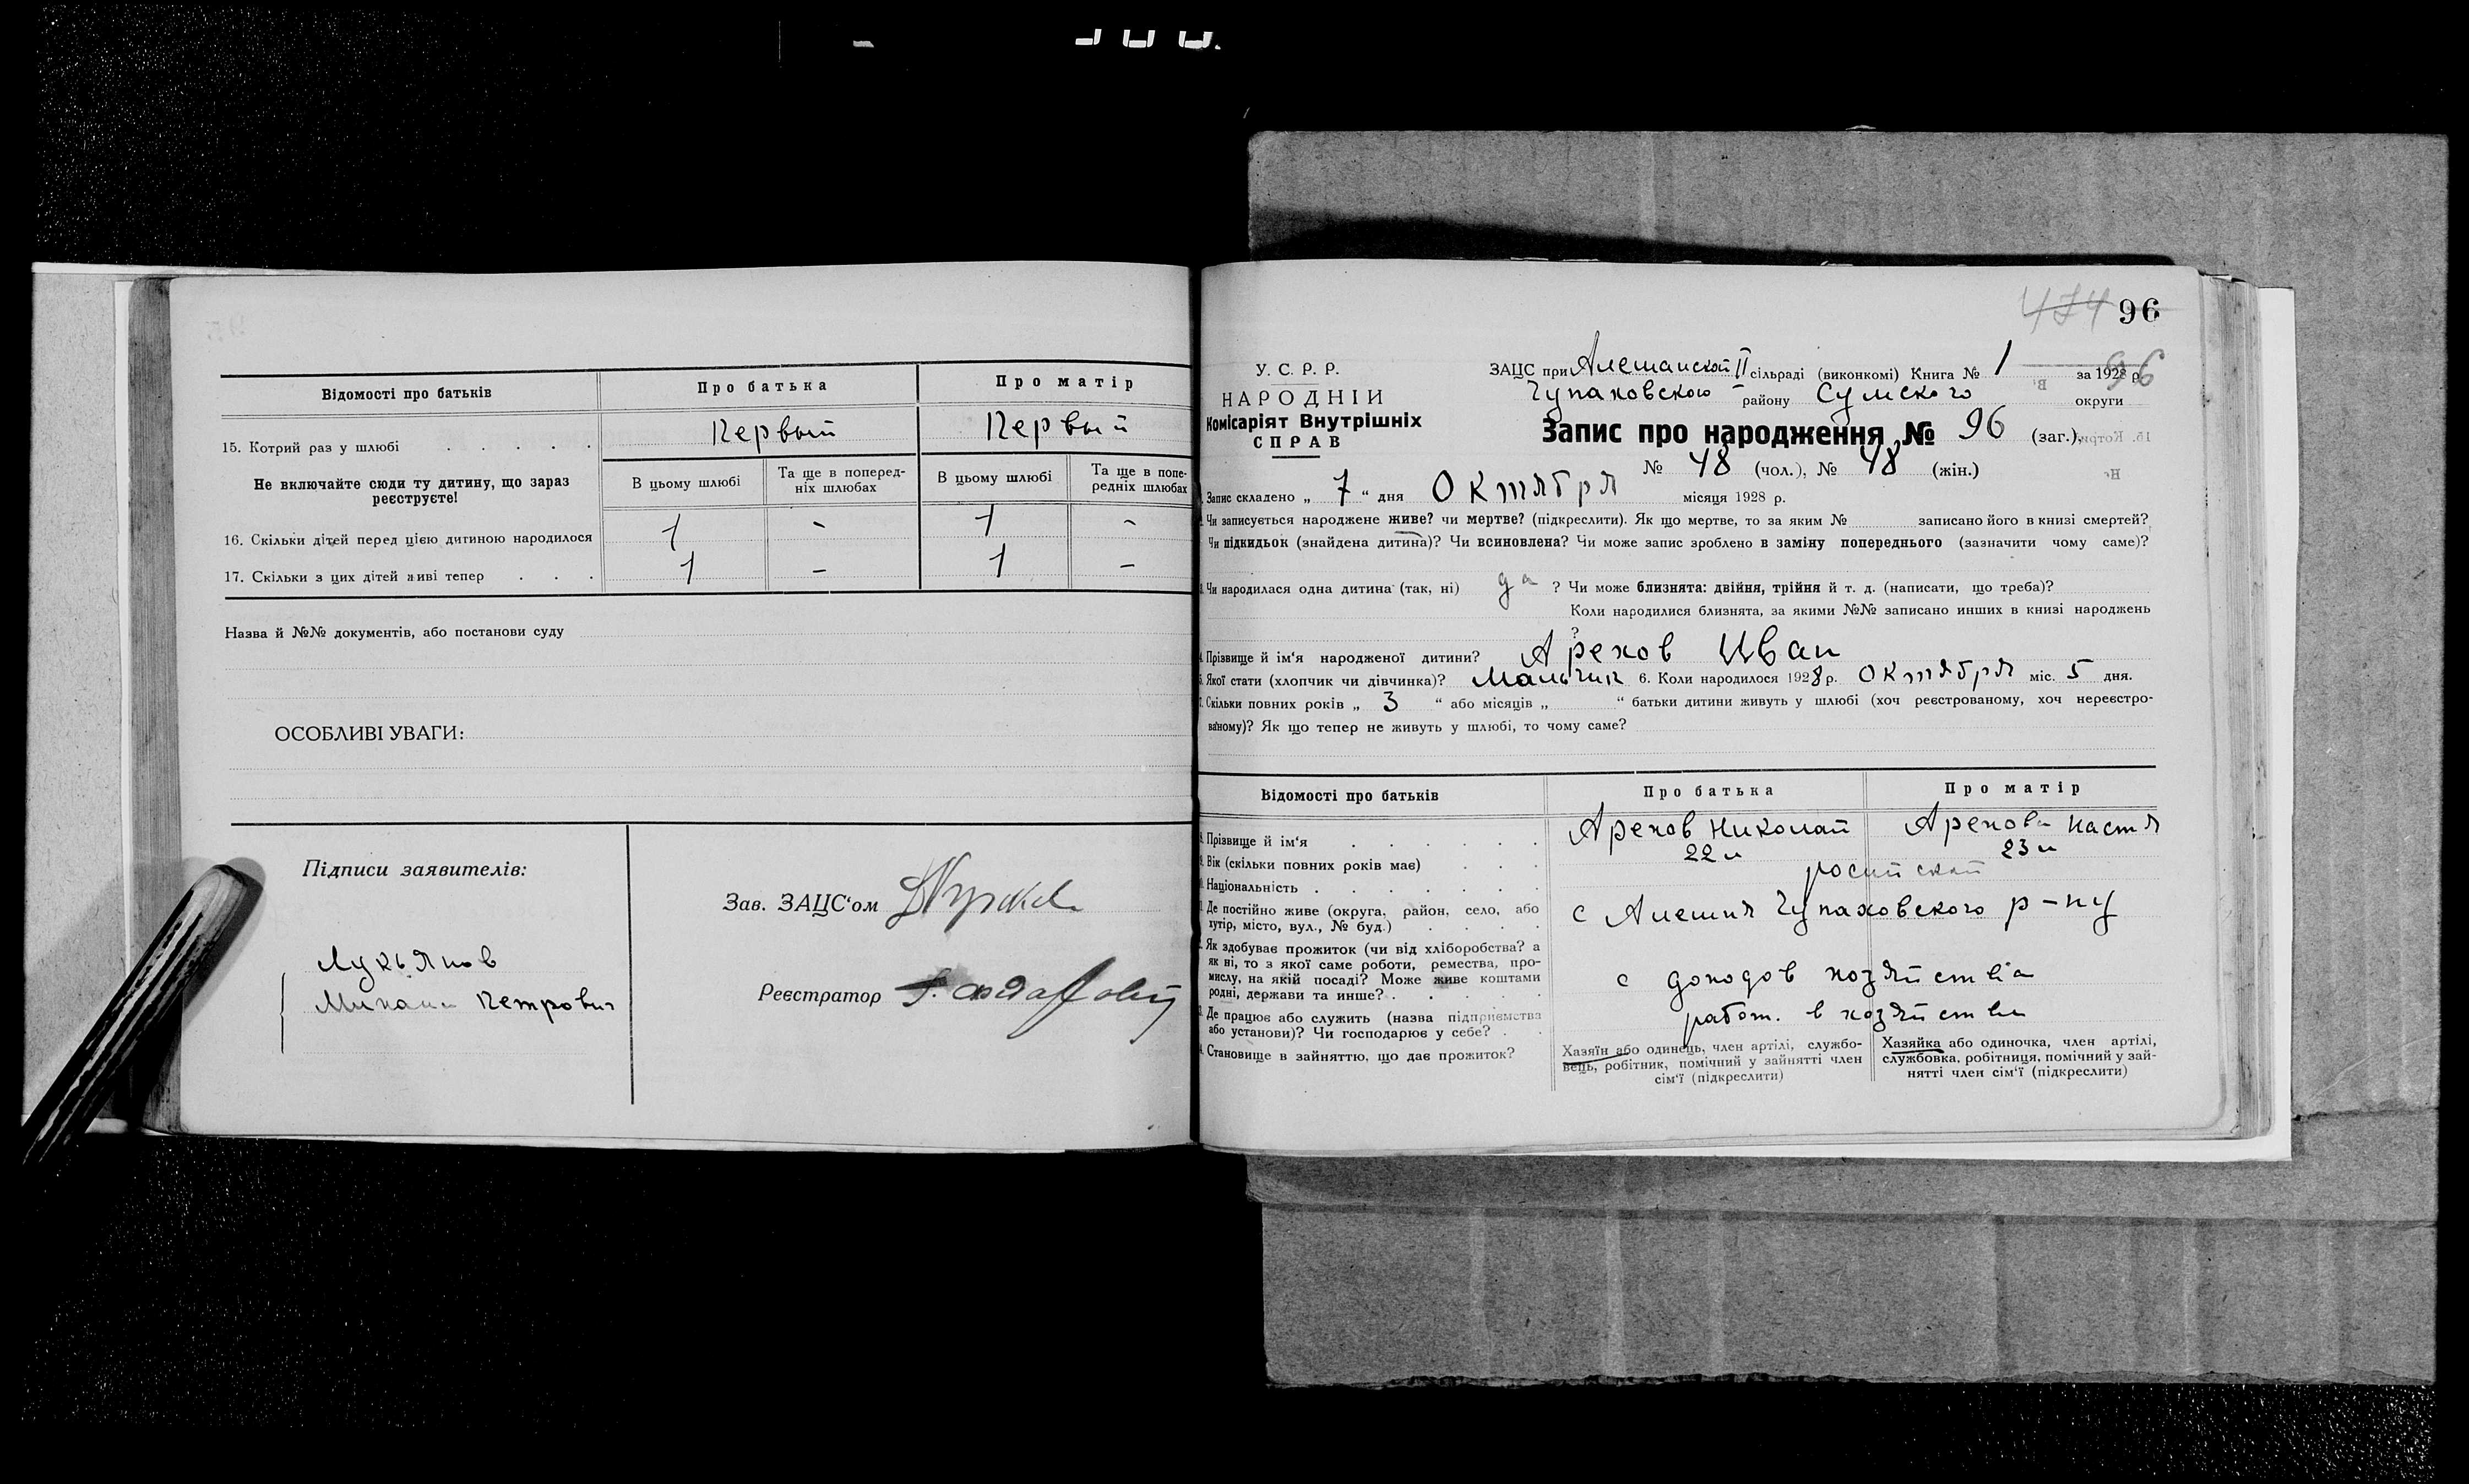 Відомості про батьків
Про батька
Про матір
15. Котрий раз у шлюбі . . . . .
Первый
Первый
Не включайте сюди ту дитину, що зараз реєструєте!
В цьому шлюбі
Та ще в поперед-
ніх шлюбах
В цьому шлюбі
Та ще в попе-
редніх шлюбах
16. Скільки дітей перед цією дитиною народилося
1 - 1 -
17. Скільки з цих дітей живі тепер . . .
1 - 1 -
Назва й №№ документів, або постанови суду
ОСОБЛИВІ УВАГИ:
Підписи заявителів:
Лукьянов
Михаил Петрович
Зав. ЗАЦС'ом
Реєстратор
474 96
96
У. С. Р. Р.
НАРОДНІЙ
Комісаріят Внутрішніх
СПРАВ
ЗАЦС при Алешанской II сільраді (виконкомі) Книга № 1 за 1928 р.
Чупаховского району Сумского округи
Запис про народження № 96 (заг.),
№ 48 (чол.), № 48 (жін.)
Запис складено „ 7 “ дня Октября місяця 1928 р.
Чи записується народжене живе? чи мертве? (підкреслити). Як що мертве, то за яким № записано його в книзі смертей?
Чи підкидьок (знайдена дитина)? Чи всиновлена? Чи може запис зроблено в заміну попереднього (зазначити чому саме)?
Чи народилася одна дитина (так, ні) да ? Чи може близнята: двійня, трійня й т. д. (написати, що треба)?
Коли народилися близнята, за якими №№ записано инших в книзі народжень
?
Прізвище й ім'я народженої дитини? Арехов Иван
Якої стати (хлопчик чи дівчинка)? Мальчик 6. Коли народилося 1928 р. Октября міс. 5 дня.
Скільки повних років „ 3 “ або місяців „ “ батьки дитини живуть у шлюбі (хоч реєстрованому, хоч нереєстро-
ваному)? Як що тепер не живуть у шлюбі, то чому саме?
Відомості про батьків
Про батька
Про матір
Прізвище й ім'я . . . . . .
Арехов Николай
Арехова Настя
Вік (скільки повних років має) . . .
22
23
Національність . . . . . . .
Де постійно живе (округа, район, село, або
хутір, місто, вул., № буд.) . . . .
с Алешня Чупаховского р-ну
Як здобуває прожиток (чи від хліборобства? а
як ні, то з якої саме роботи, ремества, про-
мислу, на якій посаді? Може живе коштами
родні, держави та инше? . . . .
с доходов хозяйства
Де працює або служить (назва підприємства
або установи)? Чи господарює у себе? . .
работ. в хозяйстве
Становище в зайняттю, що дає прожиток?
Хазяїн або одинець, член артілі, службо-
вець, робітник, помічний у зайнятті член
сім'ї (підкреслити)
Хазяйка або одиночка, член артілі,
службовка, робітниця, помічний у зай-
нятті член сім'ї (підкреслити)